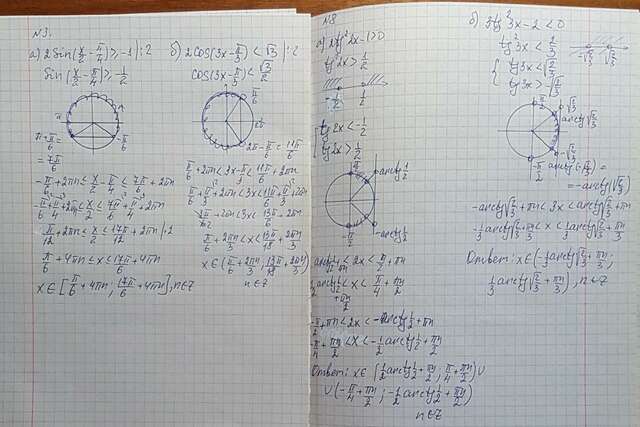 N3.
а) 2 Sin(x/2 - π/4) ≥ -1 | :2
Sin(x/2 - π/4) ≥ -1/2
π + π/6 =
= 7π/6
-π/6
-π/6 + 2πn ≤ x/2 - π/4 ≤ 7π/6 + 2πn
-π/6 + π/4 + 2πn ≤ x/2 ≤ 7π/6 + π/4 + 2πn
π/12 + 2πn ≤ x/2 ≤ 17π/12 + 2πn | ·2
π/6 + 4πn ≤ x ≤ 17π/6 + 4πn
x∈[π/6 + 4πn; 17π/6 + 4πn], n∈Z
б) 2cos(3x - π/3) < √3 | :2
cos(3x - π/3) < √3/2
π/6
2π - π/6 = 11π/6
π/6 + 2πn < 3x - π/3 < 11π/6 + 2πn
π/6 + π/3 + 2πn < 3x < 11π/6 + π/3 + 2πn
π/6 + 2πn/3 < x < 13π/18 + 2πn/3
x∈(π/6 + 2πn/3; 13π/18 + 2πn/3)
n∈Z
N8
а) 2tg²2x - 1 > 0
tg²2x > 1/2
-1/2 1/2
tg2x < -1/2
tg2x > 1/2
π/2
arctg 1/2
-arctg 1/2
-π/2
arctg 1/2 < 2x < π/2 + πn
1/2 arctg 1/2 + πn/2 < x < π/4 + πn/2
-π/2 + πn < 2x < -arctg 1/2 + πn
-π/4 + πn/2 < x < -1/2 arctg 1/2 + πn/2
Ответ: x∈(1/2 arctg 1/2 + πn/2; π/4 + πn/2) U
U (-π/4 + πn/2; -1/2 arctg 1/2 + πn/2)
n∈Z
б) 3tg²3x - 2 < 0
tg²3x < 2/3
-√2/3 √2/3
tg3x < √2/3
tg3x > -√2/3
π/2
√2/3
arctg √2/3
-√2/3
-π/2
arctg(-√2/3) =
= -arctg(√2/3)
-arctg √2/3 + πn < 3x < arctg √2/3 + πn
-1/3 arctg √2/3 + πn/3 < x < 1/3 arctg √2/3 + πn/3
Ответ: x∈(-1/3 arctg √2/3 + πn/3;
1/3 arctg √2/3 + πn/3), n∈Z